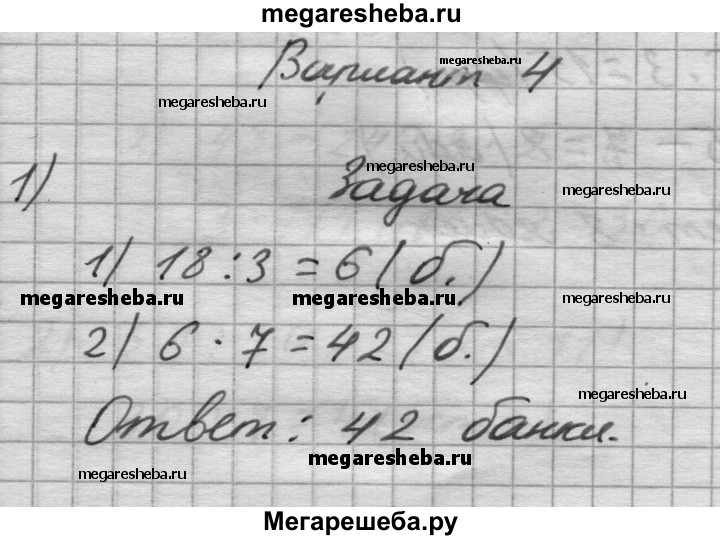 megaresheba.ru
Вариант 4
megaresheba.ru
megaresheba.ru
1) Задача
megaresheba.ru
megaresheba.ru
1) 18 : 3 = 6 (б.)
megaresheba.ru
megaresheba.ru
megaresheba.ru
2) 6 · 7 = 42 (б.)
megaresheba.ru
Ответ: 42 банки.
megaresheba.ru
megaresheba.ru
Мегарешеба.ру